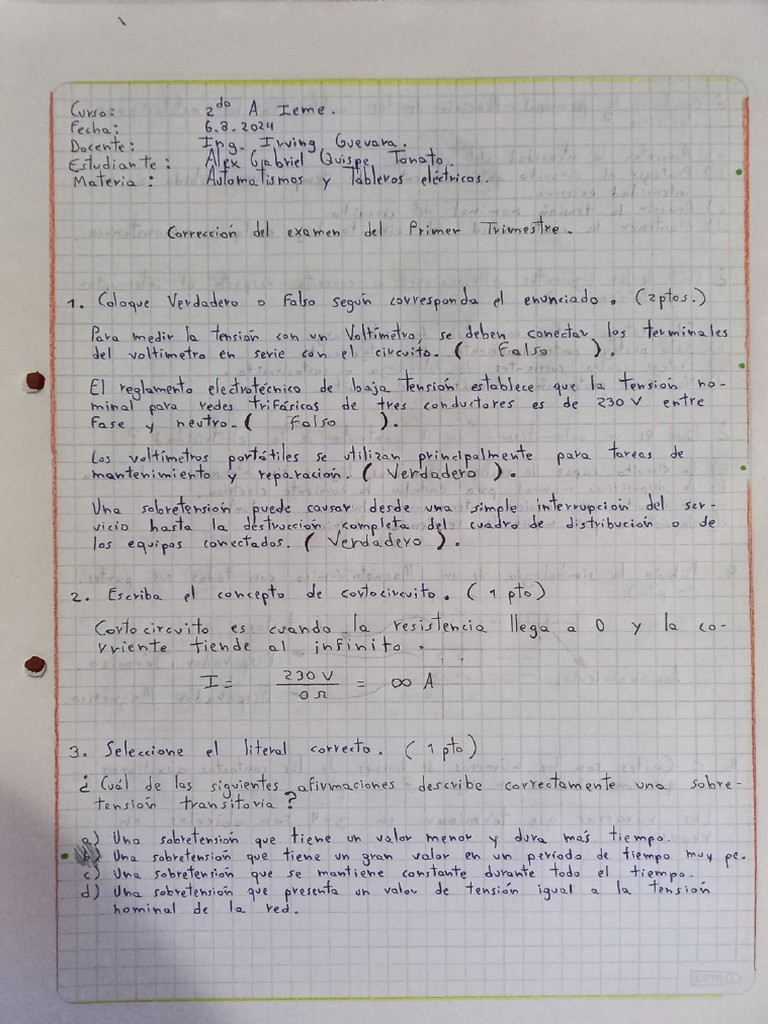 Curso: 2do A Ieme.
Fecha: 6.8.2024
Docente: Ing. Irving Guevara.
Estudiante: Alex Gabriel Quispe Tonato.
Materia: Automatismos y Tableros eléctricos.
Corrección del examen del Primer Trimestre.
1. Coloque Verdadero o Falso según corresponda el enunciado. (2ptos.)
Para medir la tensión con un Voltímetro, se deben conectar los terminales
del voltímetro en serie con el circuito. ( Falso ).
El reglamento electrotécnico de baja tensión establece que la tensión no-
minal para redes trifásicas de tres conductores es de 230 V entre
fase y neutro. ( Falso ).
Los voltímetros portátiles se utilizan principalmente para tareas de
mantenimiento y reparación. ( Verdadero ).
Una sobretensión puede causar desde una simple interrupción del ser-
vicio hasta la destrucción completa del cuadro de distribución o de
los equipos conectados. ( Verdadero ).
2. Escriba el concepto de cortocircuito. ( 1 pto)
Cortocircuito es cuando la resistencia llega a 0 y la co-
rriente tiende al infinito.
I = 230 V / 0 Ω = ∞ A
3. Seleccione el literal correcto. ( 1 pto)
¿Cuál de las siguientes afirmaciones describe correctamente una sobre-
tensión transitoria?
a) Una sobretensión que tiene un valor menor y dura más tiempo.
b) Una sobretensión que tiene un gran valor en un período de tiempo muy pe.
c) Una sobretensión que se mantiene constante durante todo el tiempo.
d) Una sobretensión que presenta un valor de tensión igual a la tensión
nominal de la red.